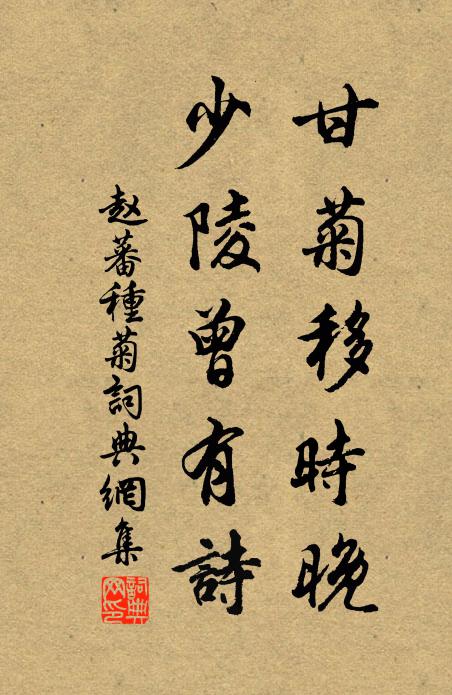 甘菊移時晚
少陵曾有詩
赵蕃種菊詞典網集
詞典網印